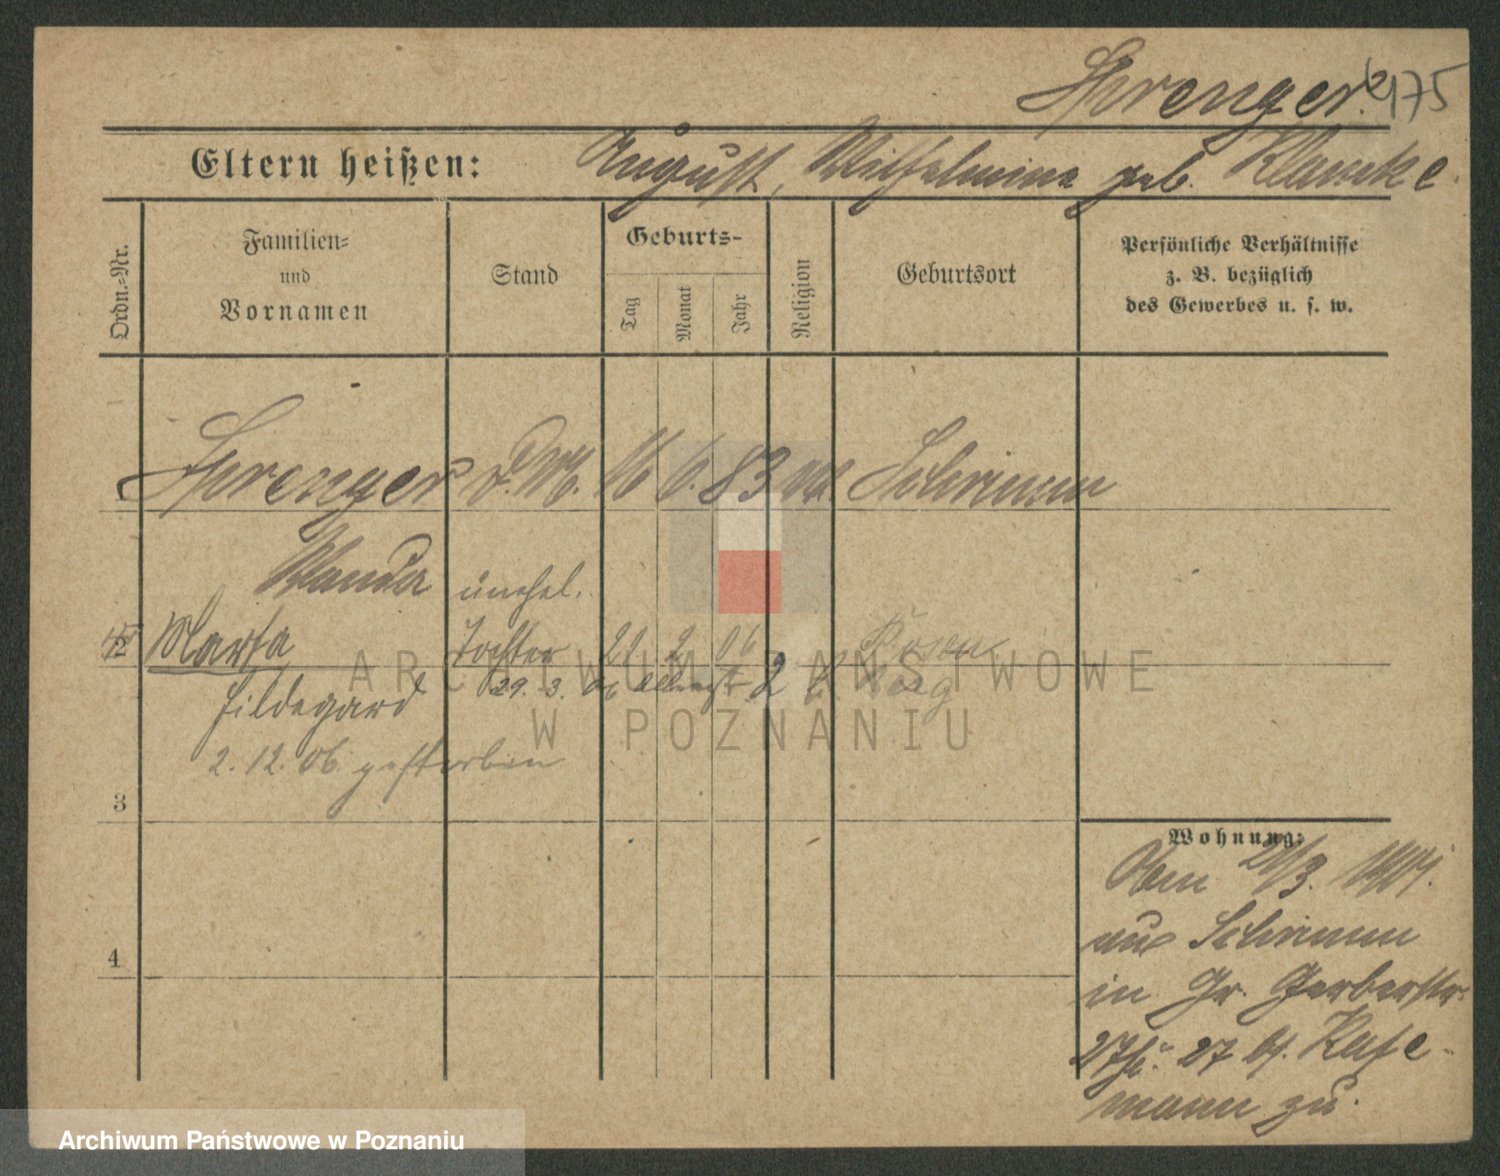 Sprenger. 6175
Eltern heißen: August, Wilhelmine geb. Klamke.
Ordn.-Nr.
Familien-
und
Vornamen
Stand
Geburts-
Tag
Monat
Jahr
Religion
Geburtsort
Persönliche Verhältnisse
z. B. bezüglich
des Gewerbes u. s. w.
1 Sprenger D.M. 16 6. 83 Schrimm
Wanda unehel.
2 Marta Tochter 21 2 06 Posen
Hildegard 29. 3. 06
2. 12. 06. gestorben
3
4
Wohnung:
21/3.
aus Schrimm
in Gr. Gerberstr.
27 bei
mann zu.
ARCHIWUM PAŃSTWOWE
W POZNANIU
Archiwum Państwowe w Poznaniu